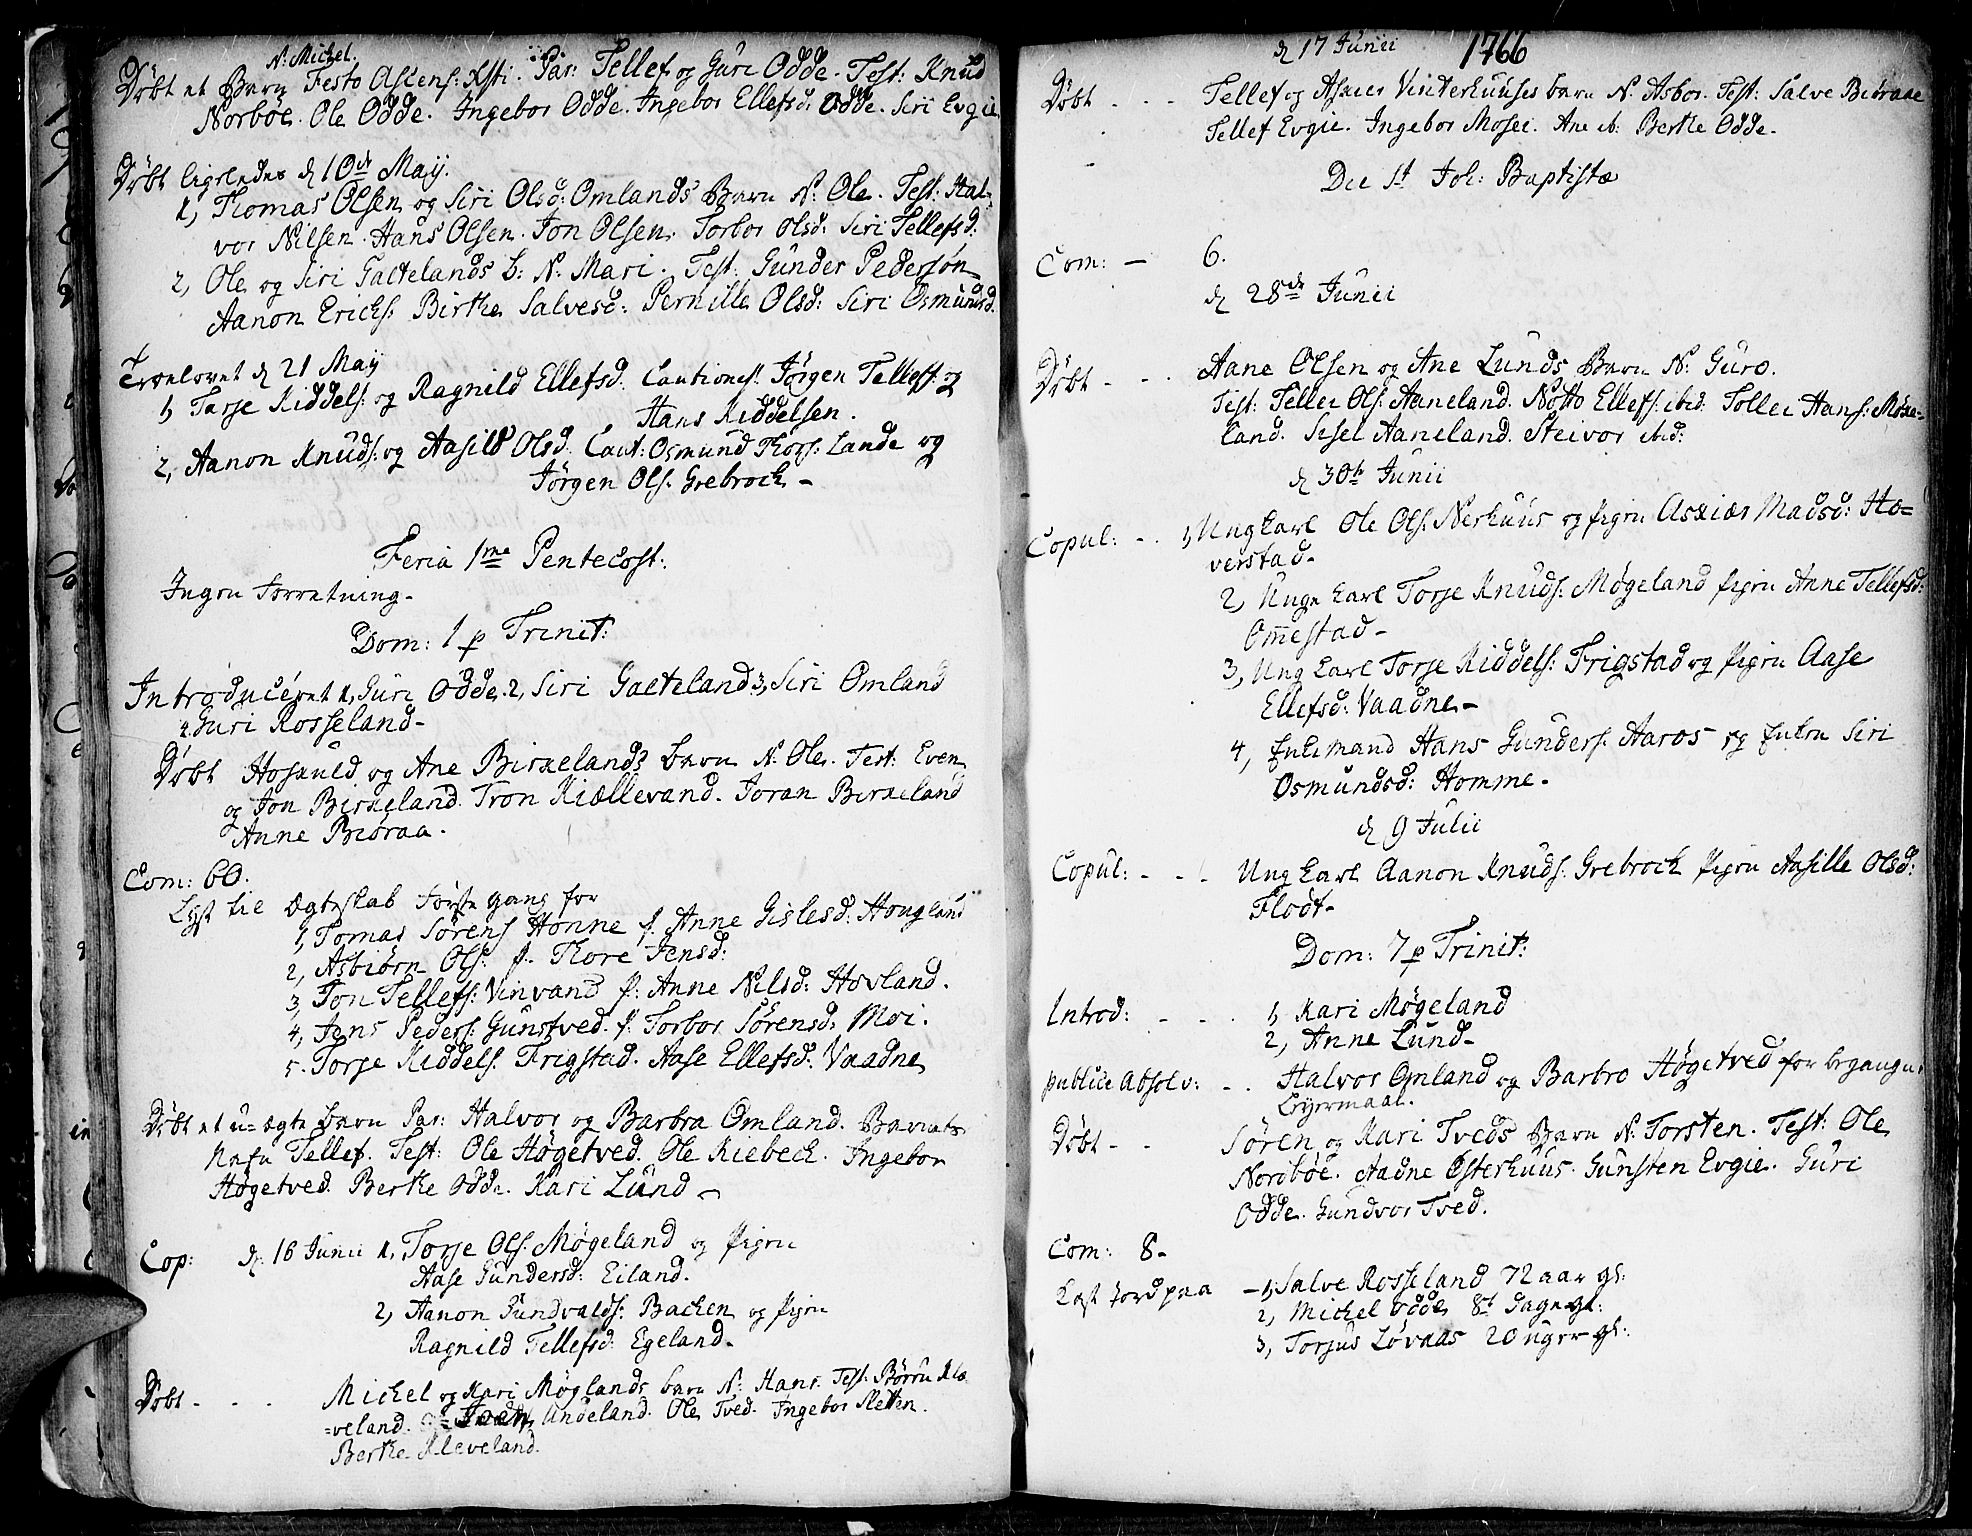 N: Michel.
Döbt et Barn Festo Ascens: Xsti. Par: Tellef og Guri Odde. Test: Knud
Norböe. Ole Odde. Ingebor Odde. Ingebor Ellefsd: Odde. Siri Evgie
Döbt ligeledes d 10de Maij.
1, Thomas Olsen og Siri Olsd: Omlands Barn N: Ole. Test: Hal-
vor Nilsen. Hans Olsen. Jon Olsen. Torbor Olsd: Siri Tellefsd.
2, Ole og Siri Gaetelands b: N: Mari. Test: Gunder Pedersön
Aanon Erichs: Birthe Salvesd: Pernille Olsd: Siri Osmundsd.
Troelovet d 21 Maij
1, Tarje Kiddels: og Ragnild Ellefsd. Cautionest: Jörgen Tellefs: og
Hans Kiddelsen.
2, Aanon Knuds: og Aasild Olsd. Caut: Osmund Thors: Lande og
Jörgen Ols: Grebrock -
Feria 1me Pentecost:
Ingen Forretning -
Dom: 1 p Trinit:
Introduceret 1, Guri Odde. 2, Siri Gaeteland 3, Siri Omland
4 Guri Rosseland -
Döbt Hoskuld og Ane Birkelands barn N: Ole. Test: Even
og Jon Birkeland. Tron Kiællevand. Joran Birkeland
Anne Biöraa.
Com: 60.
Lyst til Ægteskab första gang for
1, Tomas Sörens Honne p: Anne Gislesd: Hougland
2, Asbiörn Ols: p: Thore Jensd:
3, Jon Tellefs: Vinvand p: Anne Nilsd: Hovland.
4, Jens Peders: Gunstved. p: Torbor Sörensd: Moi.
5. Torje Kiddels. Frigstad. Aase Ellefsd: Vaadne
Döbt et u-ægte barn Par: Halvor og Barbra Omland. Barnets
Nafn Tellef. Test: Ole Högetved. Ole Kiebeck. Ingebor
Högetved. Berthe Odde. Kari Lund -
Cop: d. 16 Junii 1, Torje Ols: Mögeland og Pigen
Aase Gundersd: Eiland.
2, Aanon Gundvalds: Backen og Pigen
Ragnild Tellefsd: Egeland.
Döbt - - - Michel og Kari Möglands barn N: Hans. Test: Börru Kle
=veland. Undeland. Ole Tved. Ingebor Sletten.
Berthe Kleveland.
d 17 Junii 1766
Döbt - - - Tellef og Asneres Vinterhuuses barn N: Asbor. Test: Salve Biöraae
Tellef Evgie. Ingebor Mosei. Ane ib: Berthe Odde.
Die St Joh: Baptistæ
Com: - 6.
d 28de Junii
Döbt - - - Aane Olsen og Ane Lunds Barn N: Guro.
Test: Tellei Ols: Aaneland. Notto Ellefs: ibid: Tollei Hans: Möge-
land. Sisel Aaneland. Steivor ibid:
d 30te Junii
Copul: - - 1, Ung Karl Ole Ols: Nerhuus og pigen Askier Madsd: Ho=
verstad -
2, Unge Karl Torje Knuds: Mögeland pigen Anne Tellefsd:
Om̅estad -
3, Ung Karl Torje Kiddels: Frigstad og Pigen Aase
Ellefsd: Vaadne -
4, Enkemand Hans Gunders: Aaros og Enken Siri
Osmundsd: Homme -
d 9 Julii
Copul: - - - Ung Karl Aanon Knuds: Grebrock Pigen Aasille Olsd:
Flödt -
Dom: 7 p Trinit:
Introd: - - - 1, Kari Mögeland
2, Anne Lund -
publice Absolv: - - Halvor Omland og Barbro Högetved for begangne
Leyermaal.
Döbt - - Sören og Kari Tveds Barn N: Torsten. Test: Ole
Nordböe. Aadne Österhuus. Gunsten Evgie. Guri
Odde. Gundvor Tved.
Com: 8 -
Kast jord paa - 1, Salve Rosseland 72 aar gl:
2, Michel Odde 8t dage gl:
3, Torjus Lövaas 20 uger gl: